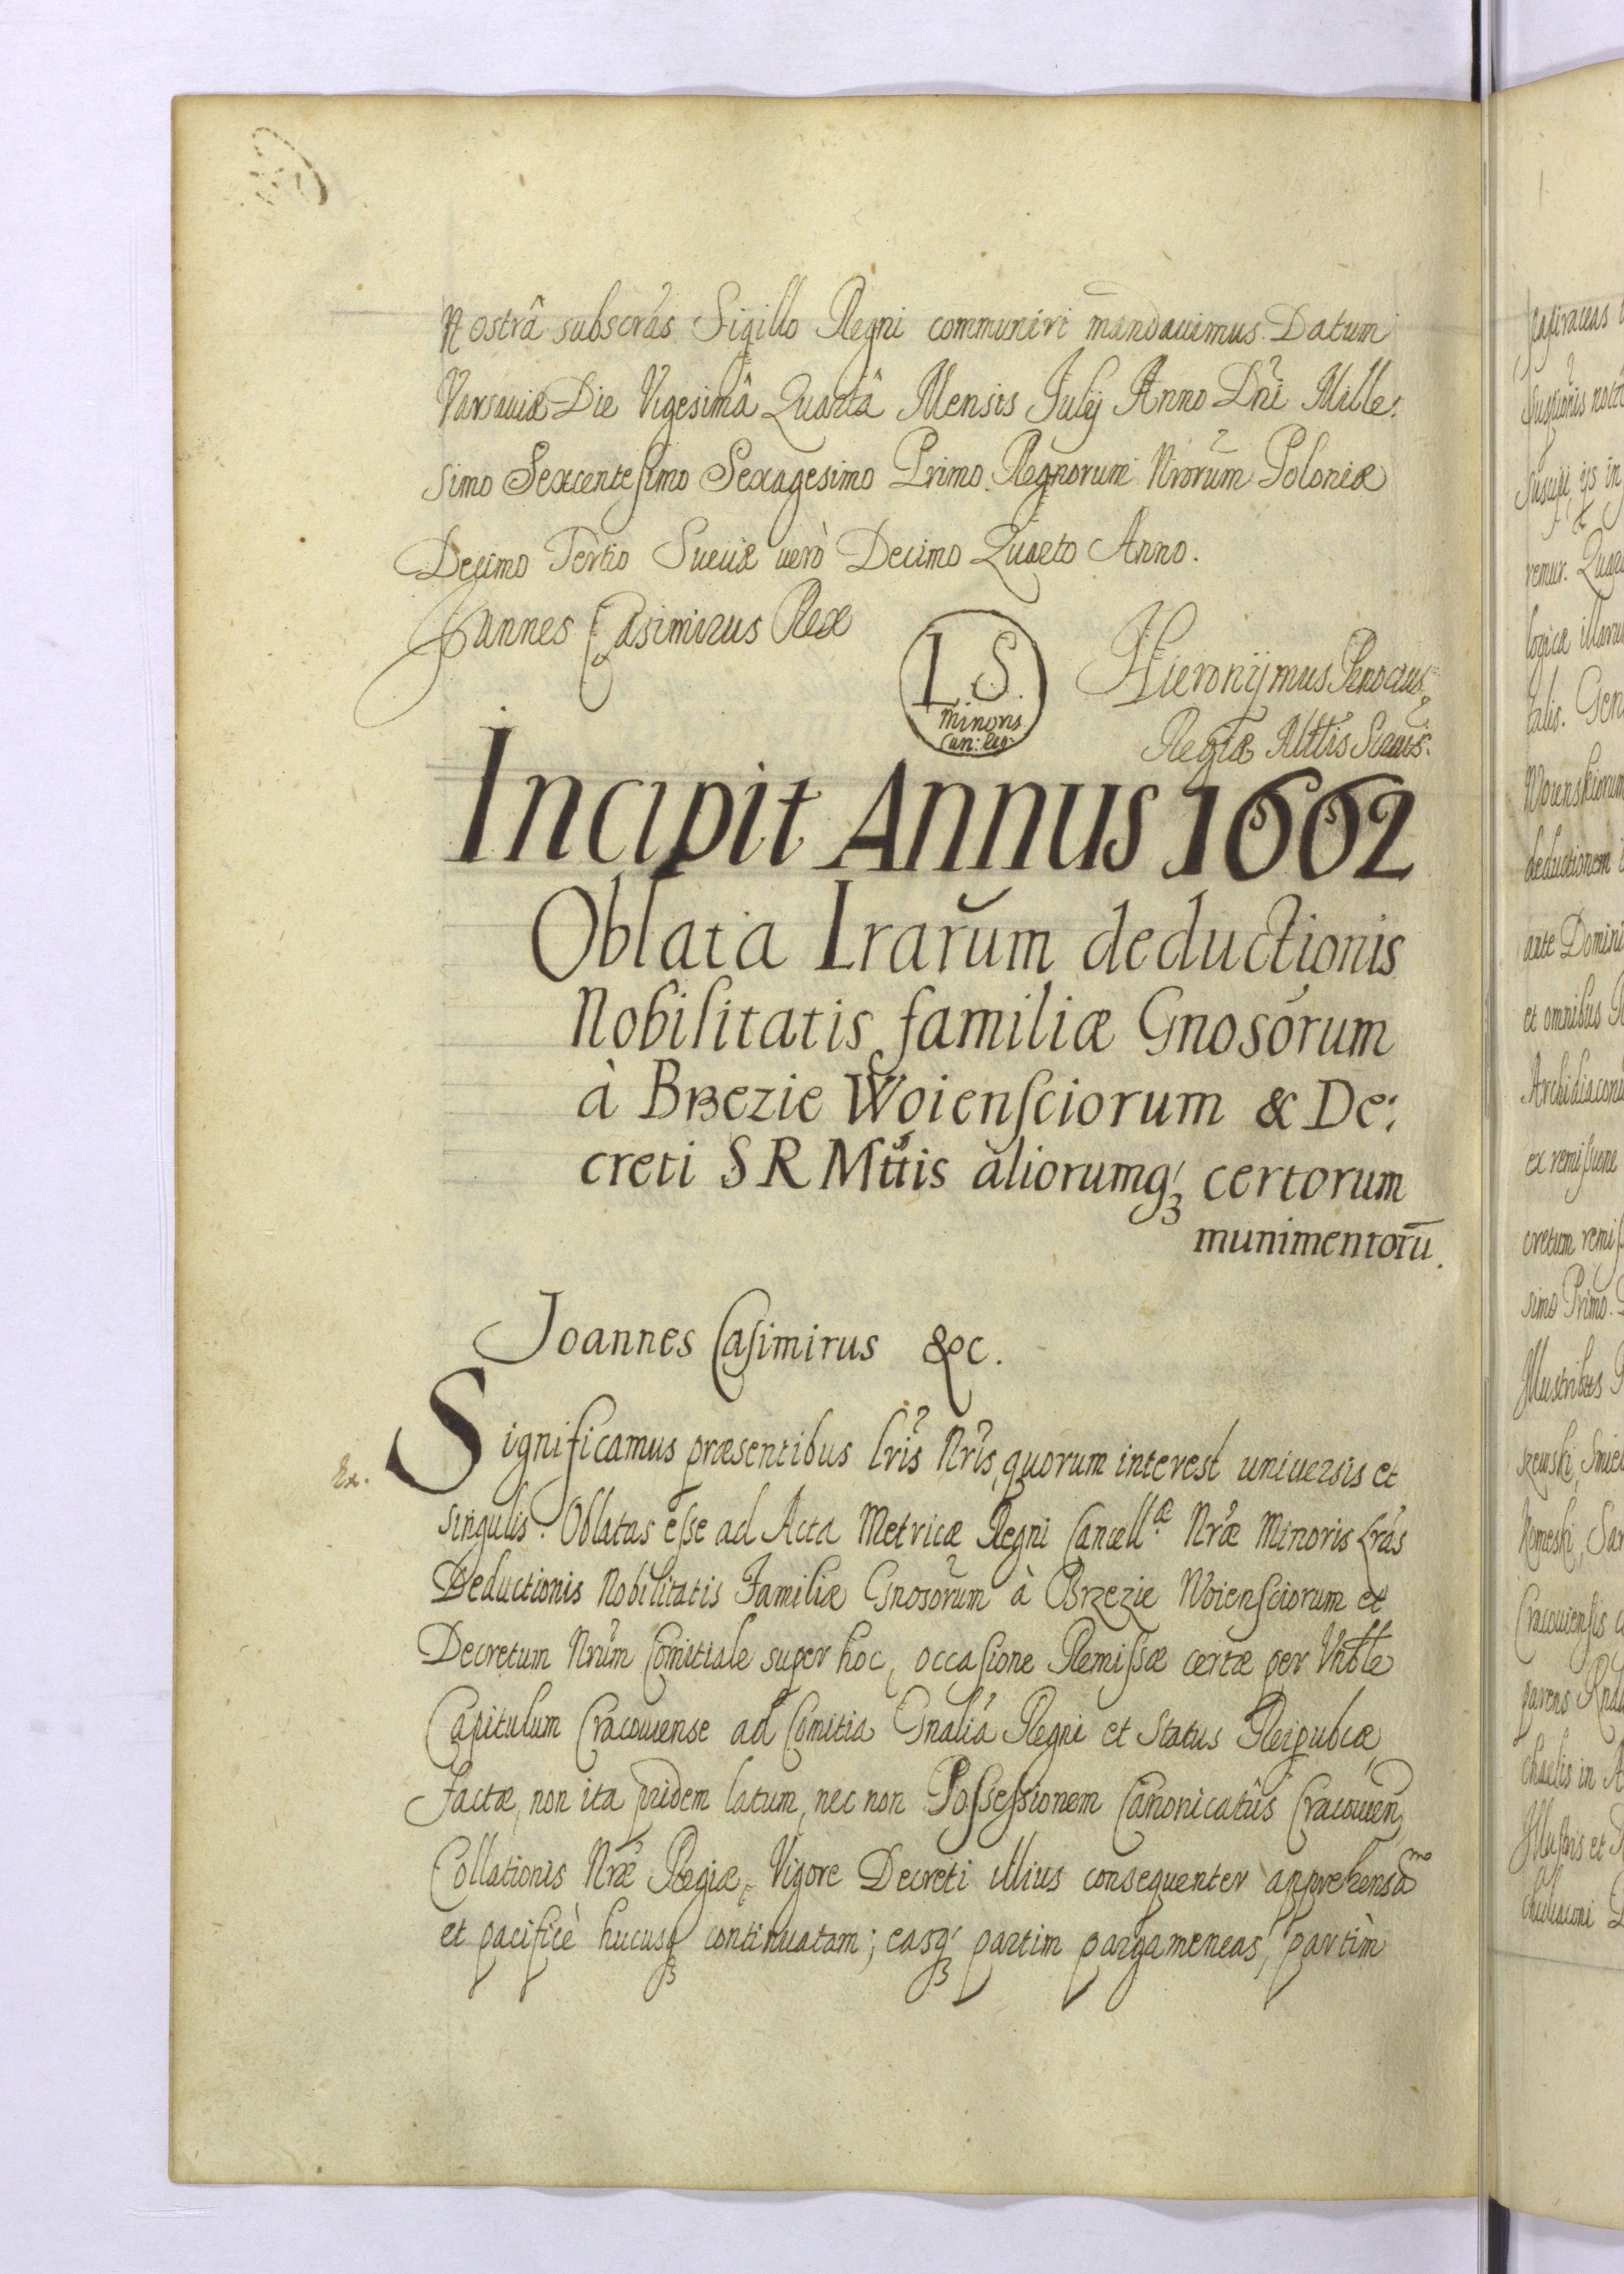 Nostrâ subscrâs Sigillo Regni communiri mandavimus. Datum
Varsaviæ Die Vigesimâ Quartâ Mensis Julij Anno Dñi Mille:
simo Sexcentesimo Sexagesimo Primo. Regnorum Nrorum Poloniæ
Decimo Tertio Sueciæ verò Decimo Quarto Anno.
Joannes Casimirus Rex
L. S.
minoris
Can: Reg:
Hieronymus Pinocius
Regiæ Mttis Secrius.
Incipit Annus 1662
Oblata Lrarum deductionis
Nobilitatis familiæ Gnosorum
à Brzezie Woiensciorum & De:
creti S R Mttis aliorumq; certorum
munimentorū.
Joannes Casimirus &c.
Ex.
Significamus præsentibus lris Nris, quorum interest universis et
singulis. Oblatas esse ad Acta Metricæ Regni Cancellæ Nræ Minoris Lrás
Deductionis Nobilitatis Familiæ Gnosorum à Brzezie Woiensciorum et
Decretum Nrum Comitiale super hoc, occasione Remissæ certæ per Vnble
Capitulum Cracoviense ad Comitia Gnalia Regni et Status Reipublcæ
factæ, non ita pridem latum, nec non Possessionem Canonicatûs Cracovien
Collationis Nræ Regiæ, Vigore Decreti illius consequenter apprehensam
et pacificè hucusq; continuatam; easq; partim pargameneas, partim